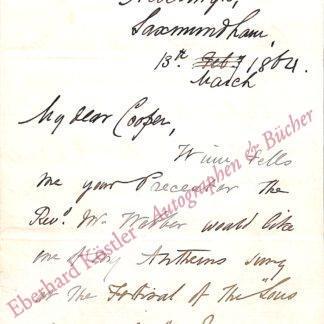 Saxmundham,
13th. Feby 1864.
March
My dear Cooper,
Winn tells
me your Precentor the
Revd. Mr. Webber would like
one of my Anthems sung
at the Festival of the "Sons
Eberhard Köstler - Autographen & Bücher